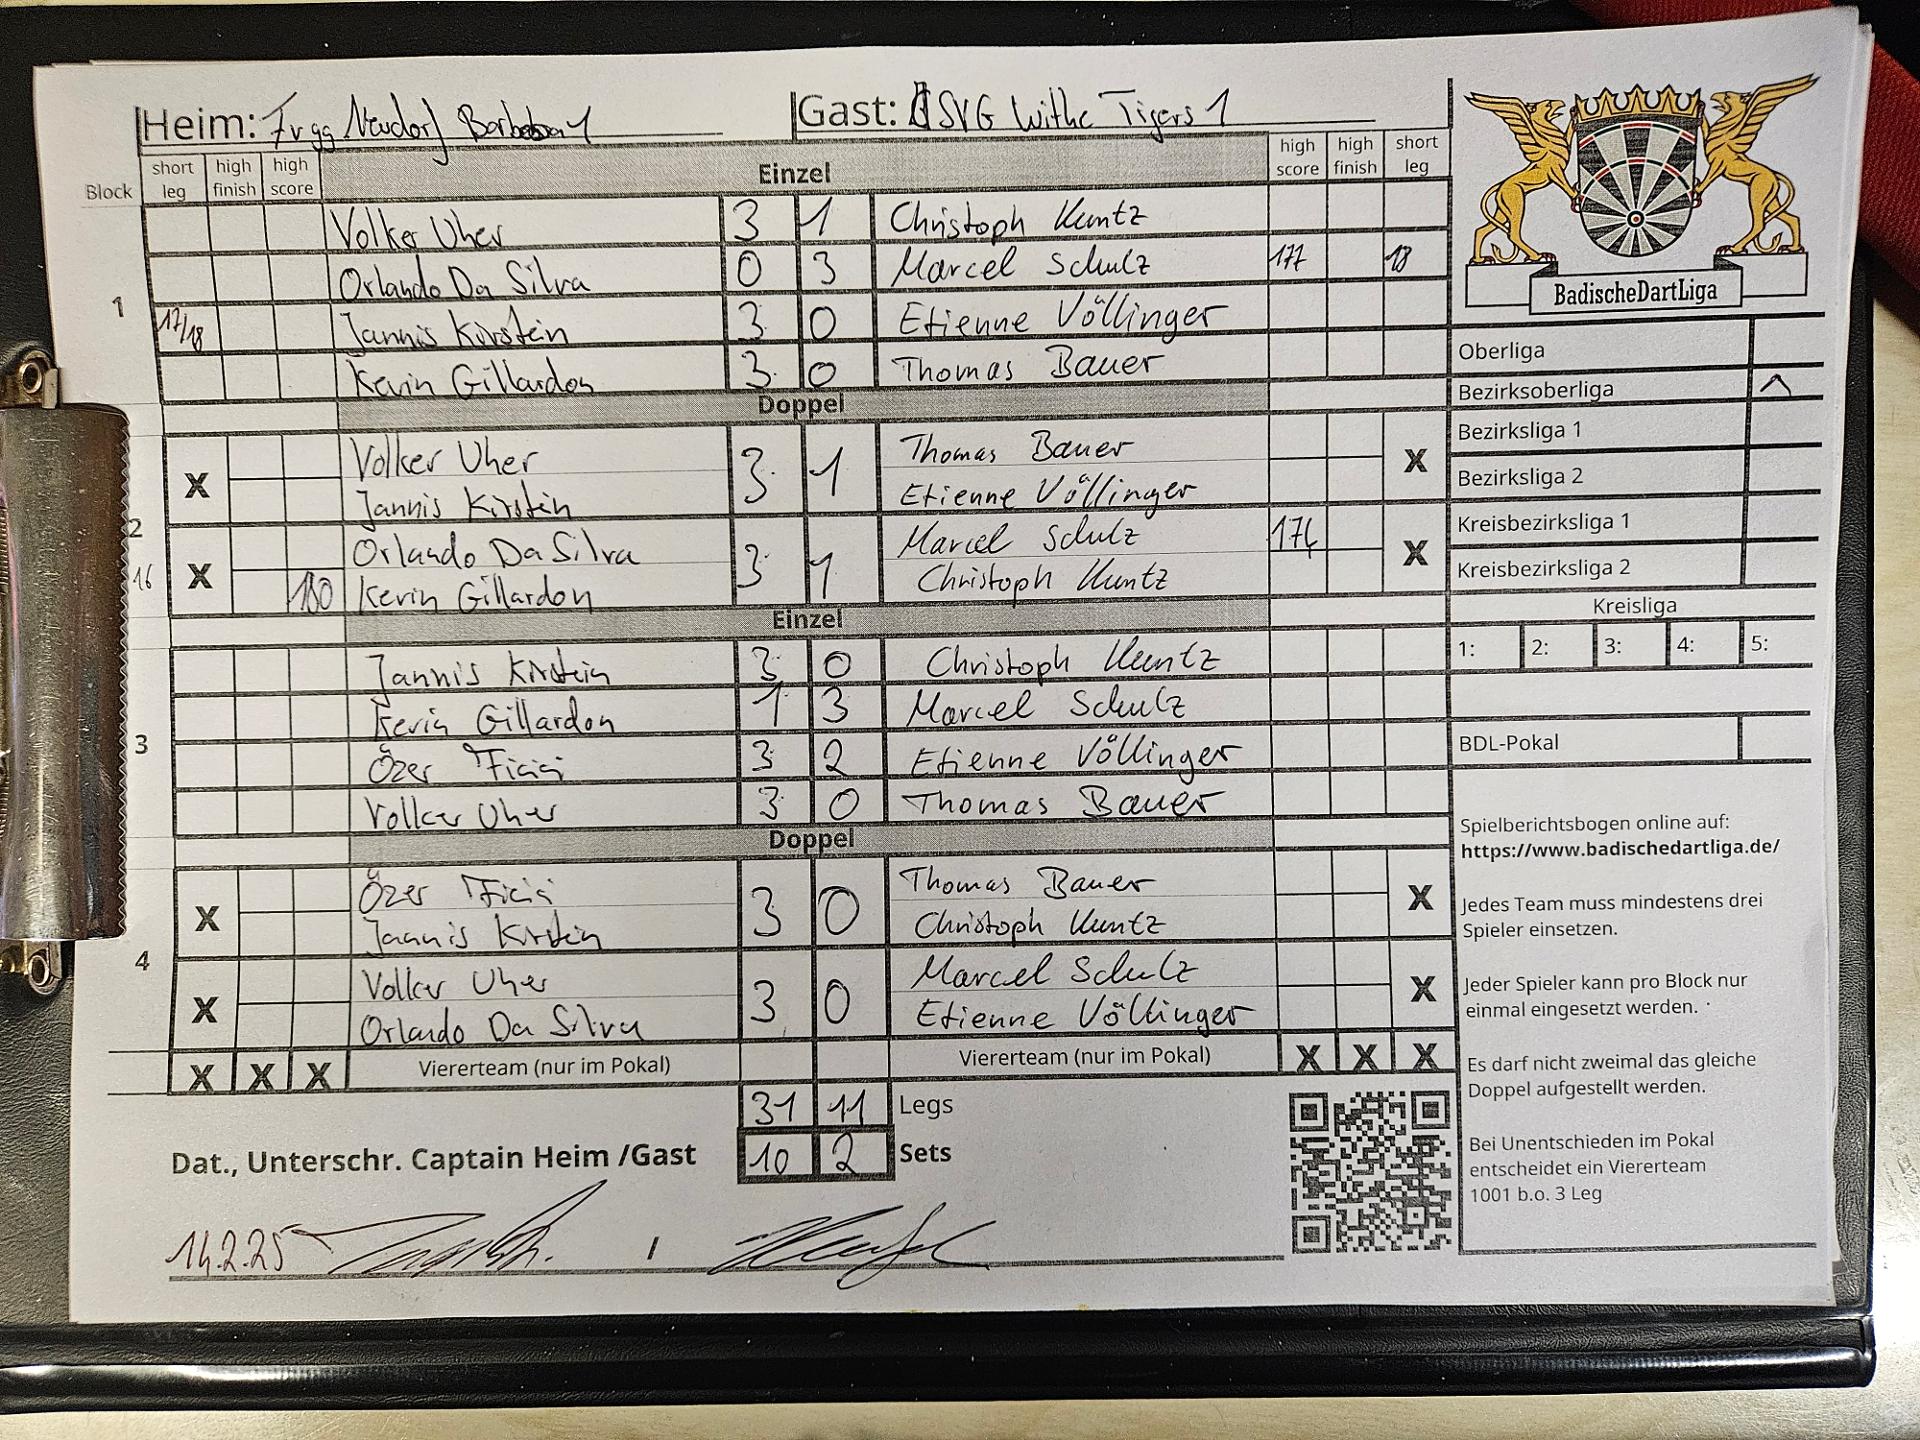 Heim: Fvgg Neudorf 1 Gast: SVG Withe Tigers 1
Block short leg high finish high score Einzel high score high finish short leg
Volker Uher 3 1 Christoph Kuntz
Orlando Da Silva 0 3 Marcel Schulz 177 18
1 17/18 Jannis Kirstein 3 0 Etienne Völlinger
Kevin Gillardon 3 0 Thomas Bauer
Doppel
X Volker Uher 3 1 Thomas Bauer X
Jannis Kirstein Etienne Völlinger
2 Orlando Da Silva 3 1 Marcel Schulz 174 X
16 X 180 Kevin Gillardon Christoph Kuntz
Einzel
Jannis Kirstein 3 0 Christoph Kuntz
Kevin Gillardon 1 3 Marcel Schulz
3 Özer Ficici 3 2 Etienne Völlinger
Volker Uher 3 0 Thomas Bauer
Doppel
X Özer Ficici 3 0 Thomas Bauer X
Jannis Kirstein Christoph Kuntz
4 X Volker Uher 3 0 Marcel Schulz X
Orlando Da Silva Etienne Völlinger
X X X Viererteam (nur im Pokal) Viererteam (nur im Pokal) X X X
31 11 Legs
Dat., Unterschr. Captain Heim /Gast 10 2 Sets
14.2.25 /
BadischeDartLiga
Oberliga
Bezirksoberliga
Bezirksliga 1
Bezirksliga 2
Kreisbezirksliga 1
Kreisbezirksliga 2
Kreisliga
1: 2: 3: 4: 5:
BDL-Pokal
Spielberichtsbogen online auf:
https://www.badischedartliga.de/
Jedes Team muss mindestens drei
Spieler einsetzen.
Jeder Spieler kann pro Block nur
einmal eingesetzt werden.
Es darf nicht zweimal das gleiche
Doppel aufgestellt werden.
Bei Unentschieden im Pokal
entscheidet ein Viererteam
1001 b.o. 3 Leg